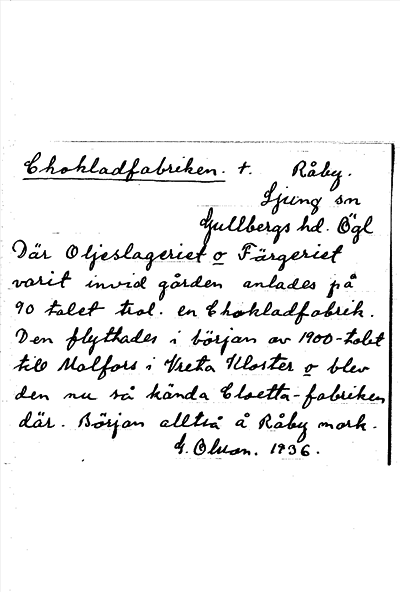 Chokladfabriken. t. Råby.
Ljung sn
Gullbergs hd. Ögl
Där Oljeslageriet o Färgeriet
varit invid gården anlades på
90 talet trol. en Chokladfabrik.
Den flyttades i början av 1900-talet
till Malfors i Vreta Kloster o blev
den nu så kända Cloetta-fabriken
där. Början alltså å Råby mark.
G. Olson. 1936.